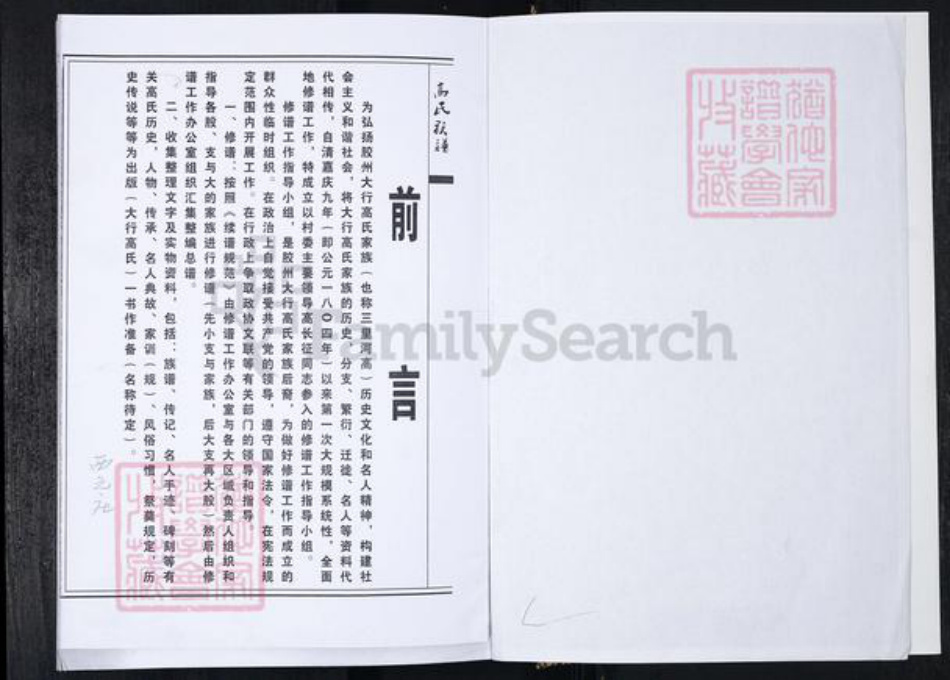 高氏族谱
前言
为弘扬胶州大行高氏家族（也称三里河高）历史文化和名人精神，构建社
会主义和谐社会，将大行高氏家族的历史、分支、繁衍、迁徙、名人等资料代
代相传，自清嘉庆九年（即公元一八〇四年）以来第一次大规模系统性，全面
地修谱工作，特成立以村委主要领导高长征同志参入的修谱工作指导小组。
修谱工作指导小组，是胶州大行高氏家族后裔，为做好修谱工作而成立的
群众性临时组织。在政治上自觉接受共产党的领导，遵守国家法令，在宪法规
定范围内开展工作。在行政上争取政协文联等有关部门的领导和指导。
一、修谱：按照《续谱规范》由修谱工作办公室与各大区域负责人组织和
指导各股、支与大的家族进行修谱（先小支与家族，后大支再大股）然后由修
谱工作办公室组织汇集整编总谱。
二、收集整理文字及实物资料，包括：族谱、传记、名人手迹、碑刻等有
关高氏历史，人物、传承、名人典故、家训（规）、风俗习惯，祭奠规定，历
史传说等等为出版（大行高氏）一书作准备（名称待定）。
猶他家
譜學會
收藏
猶他家
譜學會
收藏
FamilySearch